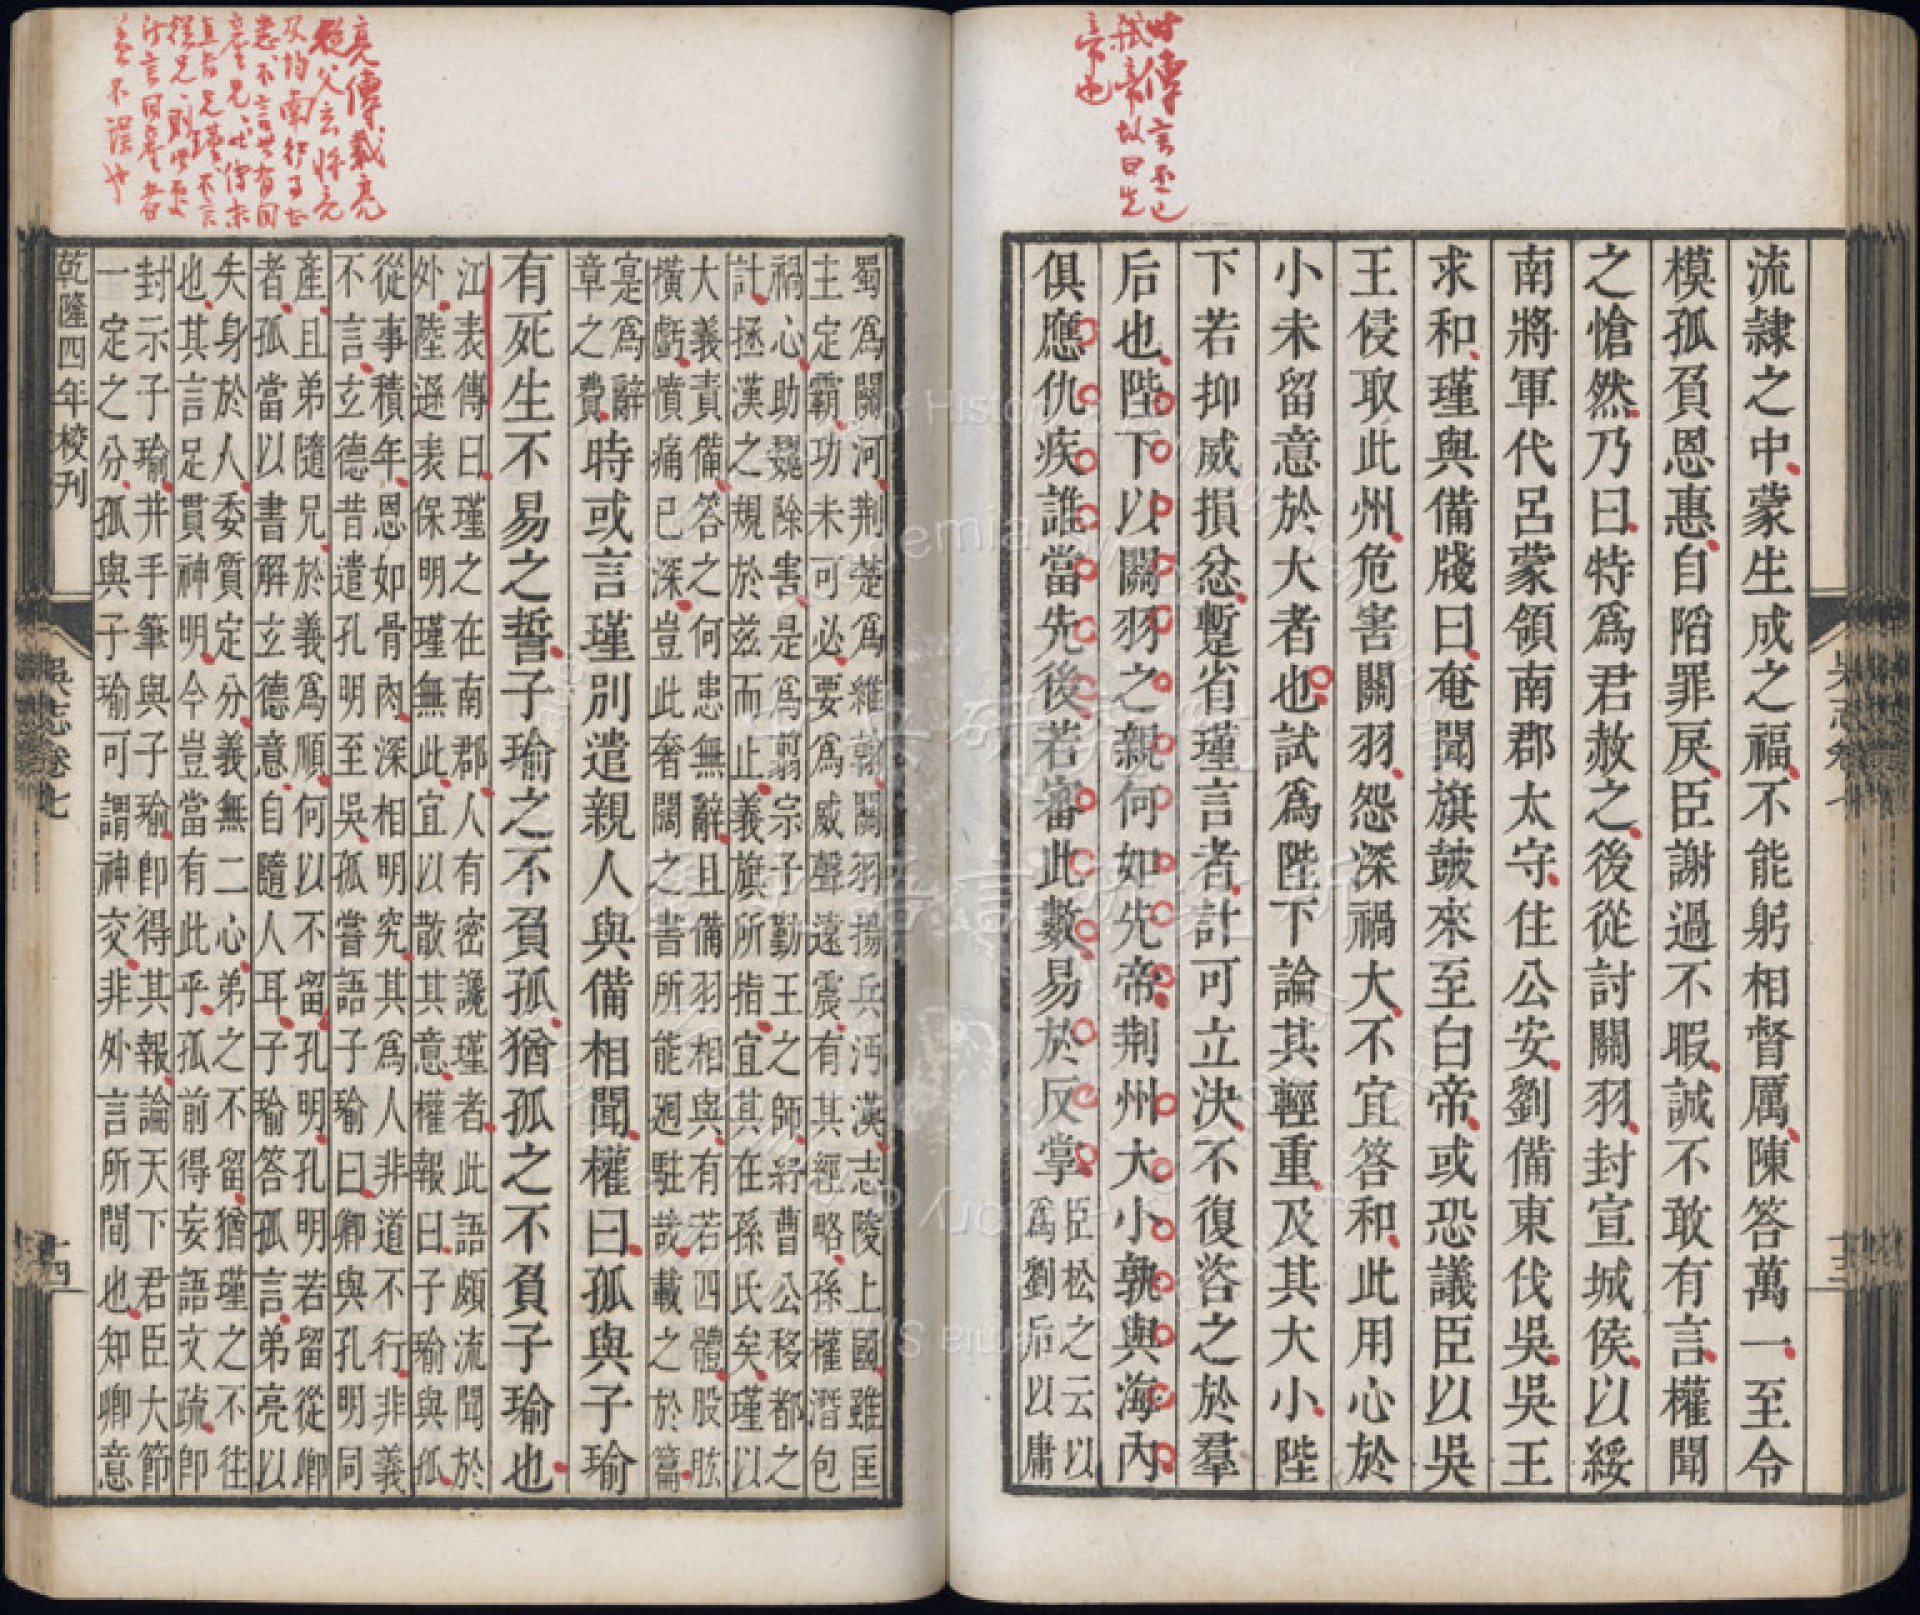 時傳言丕已
弒帝故曰先
帝也
流隸之中蒙生成之福不能躬相督厲陳答萬一至令
模孤負恩惠自陷罪戾臣謝過不暇誠不敢有言權聞
之愴然乃曰特爲君赦之後從討關羽封宣城侯以綏
南將軍代呂蒙領南郡太守住公安劉備東伐吳吳王
求和瑾與備牋曰奄聞旗鼓來至白帝或恐議臣以吳
王侵取此州危害關羽怨深禍大不宜答和此用心於
小未留意於大者也試爲陛下論其輕重及其大小陛
下若抑威損忿蹔省瑾言者計可立決不復咨之於羣
后也陛下以關羽之親何如先帝荆州大小孰與海內
俱應仇疾誰當先後若審此數易於反掌臣松之云以
爲劉后以庸
吳志卷七
十三
亮傳載亮
從父玄將亮
及均南行
悉不言其有同
產兄
蜀爲關河荆楚爲維翰關羽揚兵沔漢志陵上國雖匡
主定霸功未可必要爲威聲遠震有其經略孫權潛包
禍心助魏除害是爲翦宗子勤王之師紓曹公移都之
計拯漢之規於茲而止義旗所指宜其在孫氏矣瑾以
大義責備答之何患無辭且備羽相與有若四體股肱
橫虧憤痛已深豈此奢闊之書所能迴駐哉載之於篇
寔爲辭
章之費時或言瑾別遣親人與備相聞權曰孤與子瑜
有死生不易之誓子瑜之不負孤猶孤之不負子瑜也
江表傳曰瑾之在南郡人有密讒瑾者此語頗流聞於
外陸遜表保明瑾無此宜以散其意權報曰子瑜與孤
從事積年恩如骨肉深相明究其爲人非道不行非義
不言玄德昔遣孔明至吳孤嘗語子瑜曰卿與孔明同
產且弟隨兄於義爲順何以不留孔明孔明若留從卿
者孤當以書解玄德意自隨人耳子瑜答孤言弟亮以
失身於人委質定分義無二心弟之不留猶瑾之不往
也其言足貫神明今豈當有此乎孤前得妄語文疏卽
封示子瑜并手筆與子瑜卽得其報論天下君臣大節
一定之分孤與子瑜可謂神交非外言所間也知卿意
乾隆四年校刊
吳志卷七
十四